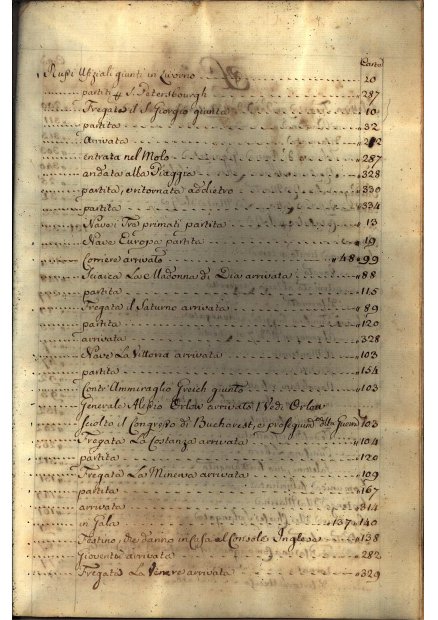 Carta
Russi Ufiziali giunti in Livorno 20
partiti p S. Petersbourgh 287
Fregata il S. Giorgio giunta 10
partita 32
Arrivata
entrata nel Molo 287
andata alla Piaggia 328
partita, e ritornata addietro 330
partita 334
Nave Tra primati partita 13
Nave Europa partita 19
Corriere arrivato 48 e 99
La Madonna di Dia arrivata 88
partita 115
Fregata il Saturno arrivata 89
partita 120
arrivata 328
Nave La Vittoria arrivata 103
partita 154
Contr'Ammiraglio Greich giunto 103
Jenerale Alessio Orlow arrivato Vedi Orlow
sciolto il Congresso di Bucharest, e della Guerra 103
Fregata La Costanza arrivata 104
partita 120
Fregata La Minerva arrivata 109
partita 167
arrivata 314
in Gala 137 e 140
Festino, che danno in Casa al Console Inglese 138
Gioventù arrivata 282
Fregata La Venere arrivata 329